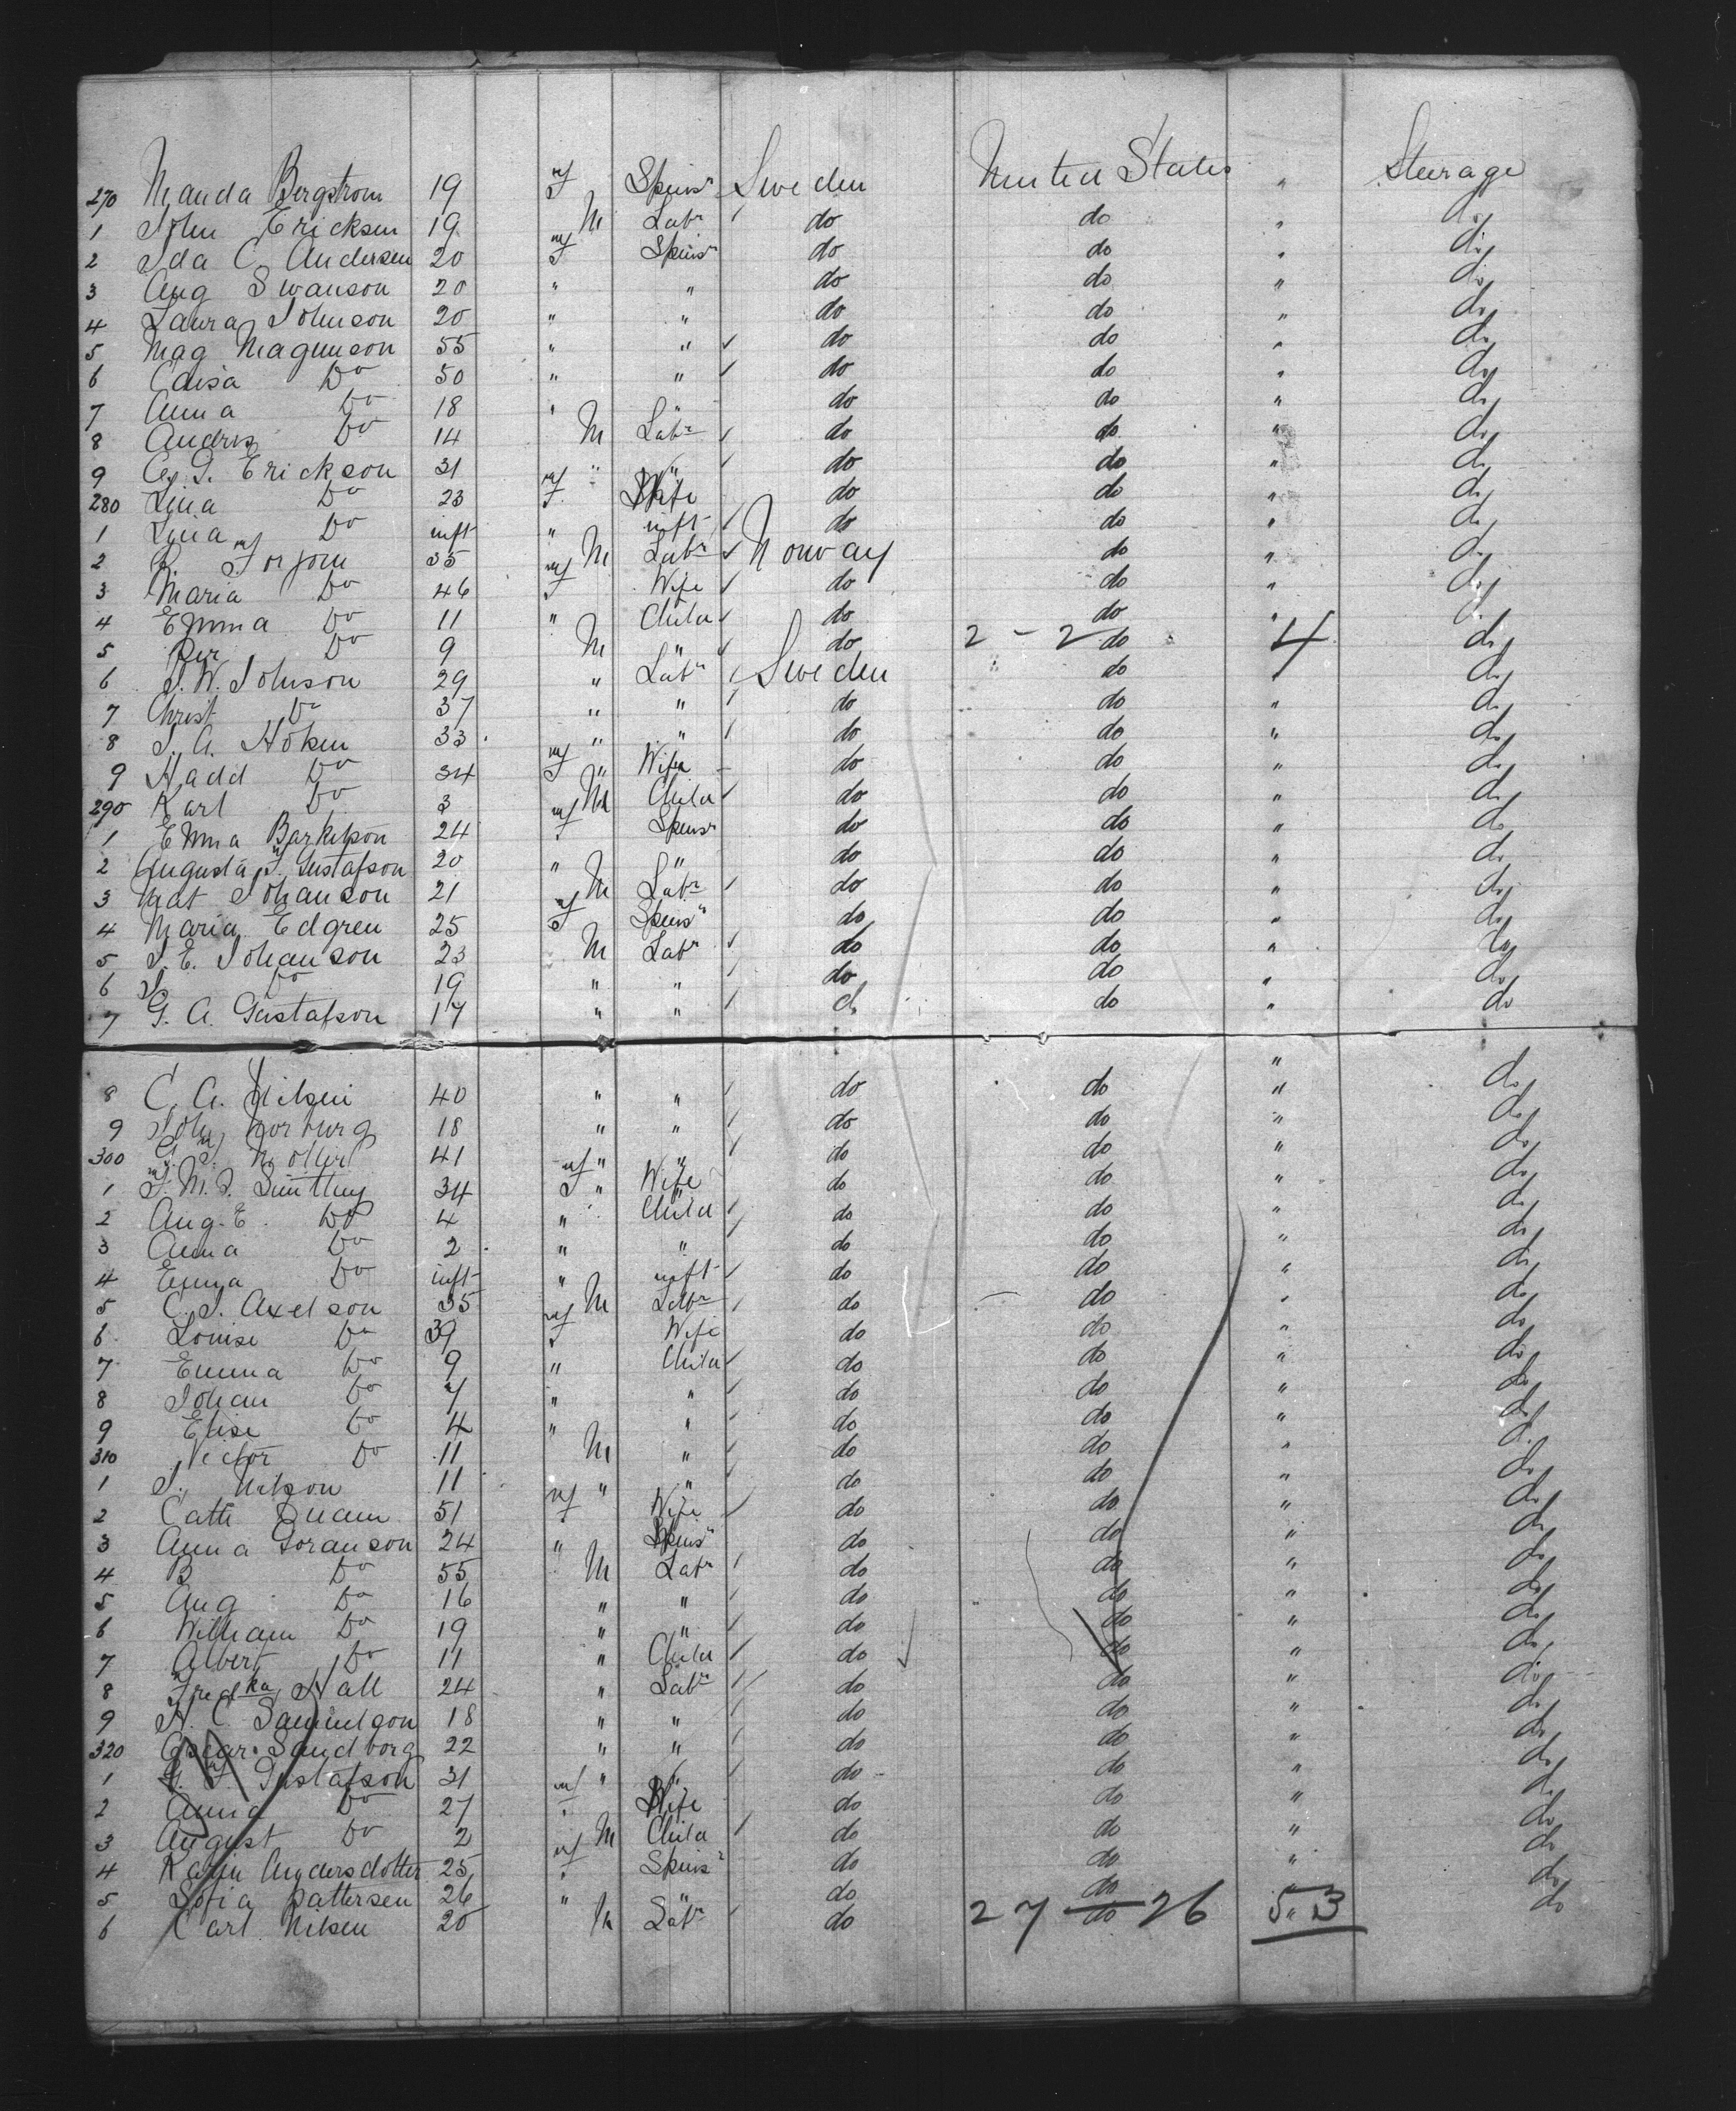 270 Manda Bergstrom 19 F Spinsr Sweden United States " Steerage
1 John Ericksen 19 M Labr do do " do
2 Ida C. Andersen 20 F Spinsr do do " do
3 Aug Swanson 20 " " do do " do
4 Laura Johnson 20 " " do do " do
5 Mag Magnuson 55 " " do do " do
6 Do 50 " " do do " do
7 Anna Do 18 " do do " do
8 Andrs Do 14 M Labr do do " do
9 Erickson 31 " " do do " do
280 Lina Do 23 F Wife do do " do
1 Lina Do inft " inft do do " do
2 35 M Labr Norway do " do
3 Maria Do 46 F Wife do do " do
4 Emma Do 11 " Child do do " do
5 Per Do 9 M " do 2 - 2 do 4 do
6 J. W. Johnson 29 " Labr Sweden do " do
7 Christ Do 37 " " do do " do
8 J. A. Hoken 33 " " do do " do
9 Hadd Do 34 F Wife do do " do
290 Karl Do 3 M Child do do " do
1 Emma 24 F Spinsr do do " do
2 Augusta J. Gustafson 20 " " do do " do
3 Mat Johanson 21 M Labr do do " do
4 Maria Edgren 25 F Spinsr do do " do
5 J. E. Johanson 23 M Labr do do " do
6 Do 19 " " do do " do
7 G. A. Gustafson 17 " " do do " do
8 C. A. Nilsen 40 " " do do " do
9 John Norburg 18 " " do do " do
300 41 " " do do " do
1 34 F Wife do do " do
2 Aug. E. Do 4 " Child do do " do
3 Anna Do 2 " " do do " do
4 Emma Do inft " inft do do " do
5 C. J. Axelson 35 M Labr do do " do
6 Louise Do 39 F Wife do do " do
7 Emma Do 9 " Child do do " do
8 Johan Do 7 " " do do " do
9 Elise Do 4 " " do do " do
310 Vector Do 11 M " do do " do
1 J. Nilson 11 " " do do " do
2 Cath 51 F Wife do do " do
3 Anna Goranson 24 " Spinsr do do " do
4 B Do 55 M Labr do do " do
5 Aug Do 16 " " do do " do
6 William Do 19 " " do do " do
7 Albert Do 11 " Child do do " do
8 Fredka Hall 24 " Labr do do " do
9 A. C. Samuelson 18 " " do do " do
320 Oscar Sandborg 22 " " do do " do
1 Gustafson 31 " " do do " do
2 Anna Do 27 F Wife do do " do
3 August Do 2 M Child do do " do
4 Karin Andersdotter 25 F Spinsr do do " do
5 Sofia Pattersen 26 " " do do " do
6 Carl Nilsen 20 M Labr do 27 do 26 53 do